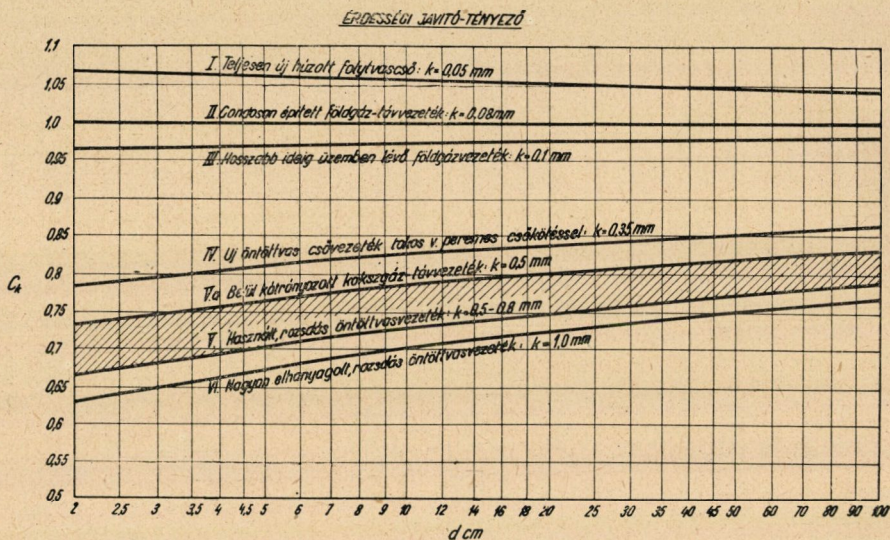 ÉRDESSÉGI JAVITÓ-TÉNYEZŐ
1,1
1,05
1,0
0,95
0,9
0,85
0,8
0,75
0,7
0,65
0,6
0,55
0,5
Cₖ
I. Teljesen új húzott folytvascső: k=0,05 mm
II. Gondosan épített földgáz-távvezeték: k=0,08mm
III. Hosszabb ideig üzemben lévő földgázvezeték: k=0,1 mm
IV. Uj öntöttvas csővezeték tokos v. peremes csőkötéssel: k=0,35 mm
V.a Belül kátrányozott kokszgáz-távvezeték: k=0,5 mm
V. Használt, rozsdás öntöttvasvezeték: k=0,5-0,8 mm
VI. Nagyon elhanyagolt, rozsdás öntöttvasvezeték: k=1,0 mm
2 2,5 3 3,5 4 4,5 5 6 7 8 9 10 12 14 16 18 20 25 30 35 40 45 50 60 70 80 90 100
d cm